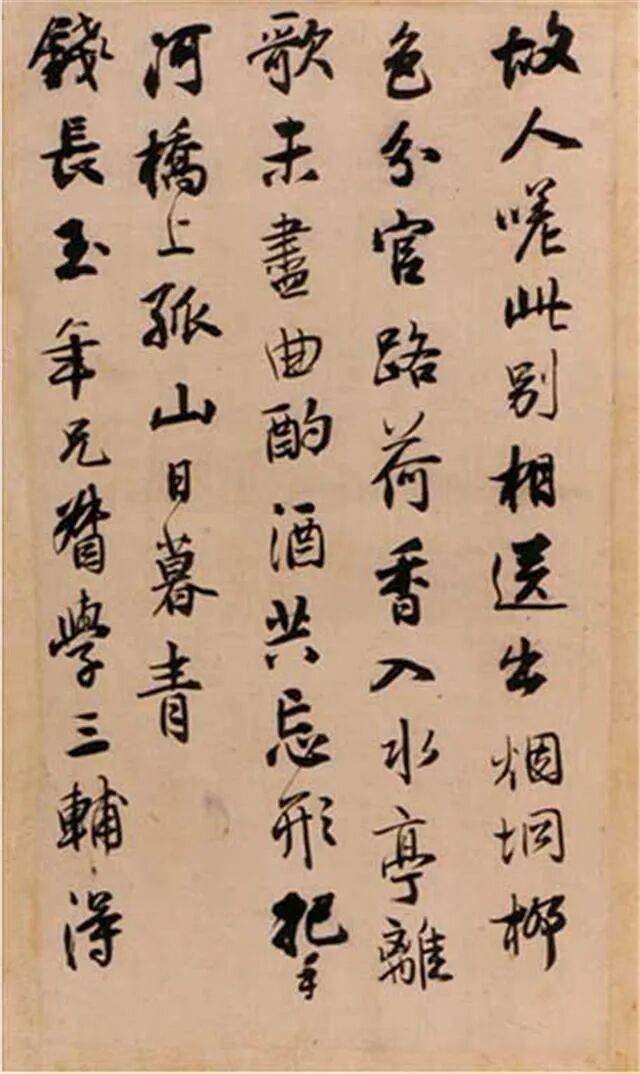 故人嗟此别相送出烟坰柳
色分官路荷香入水亭離
歌未盡曲酌酒共忘形把手
河橋上孤山日暮青
錢長玉年兄督學三輔得